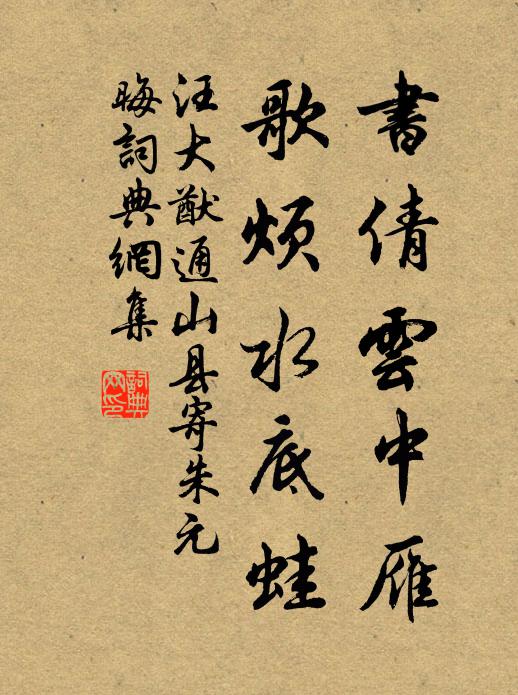 書倩雲中雁
歌煩水底蛙
汪大猷通山县寄朱元
晦詞典網集
詞典
网印